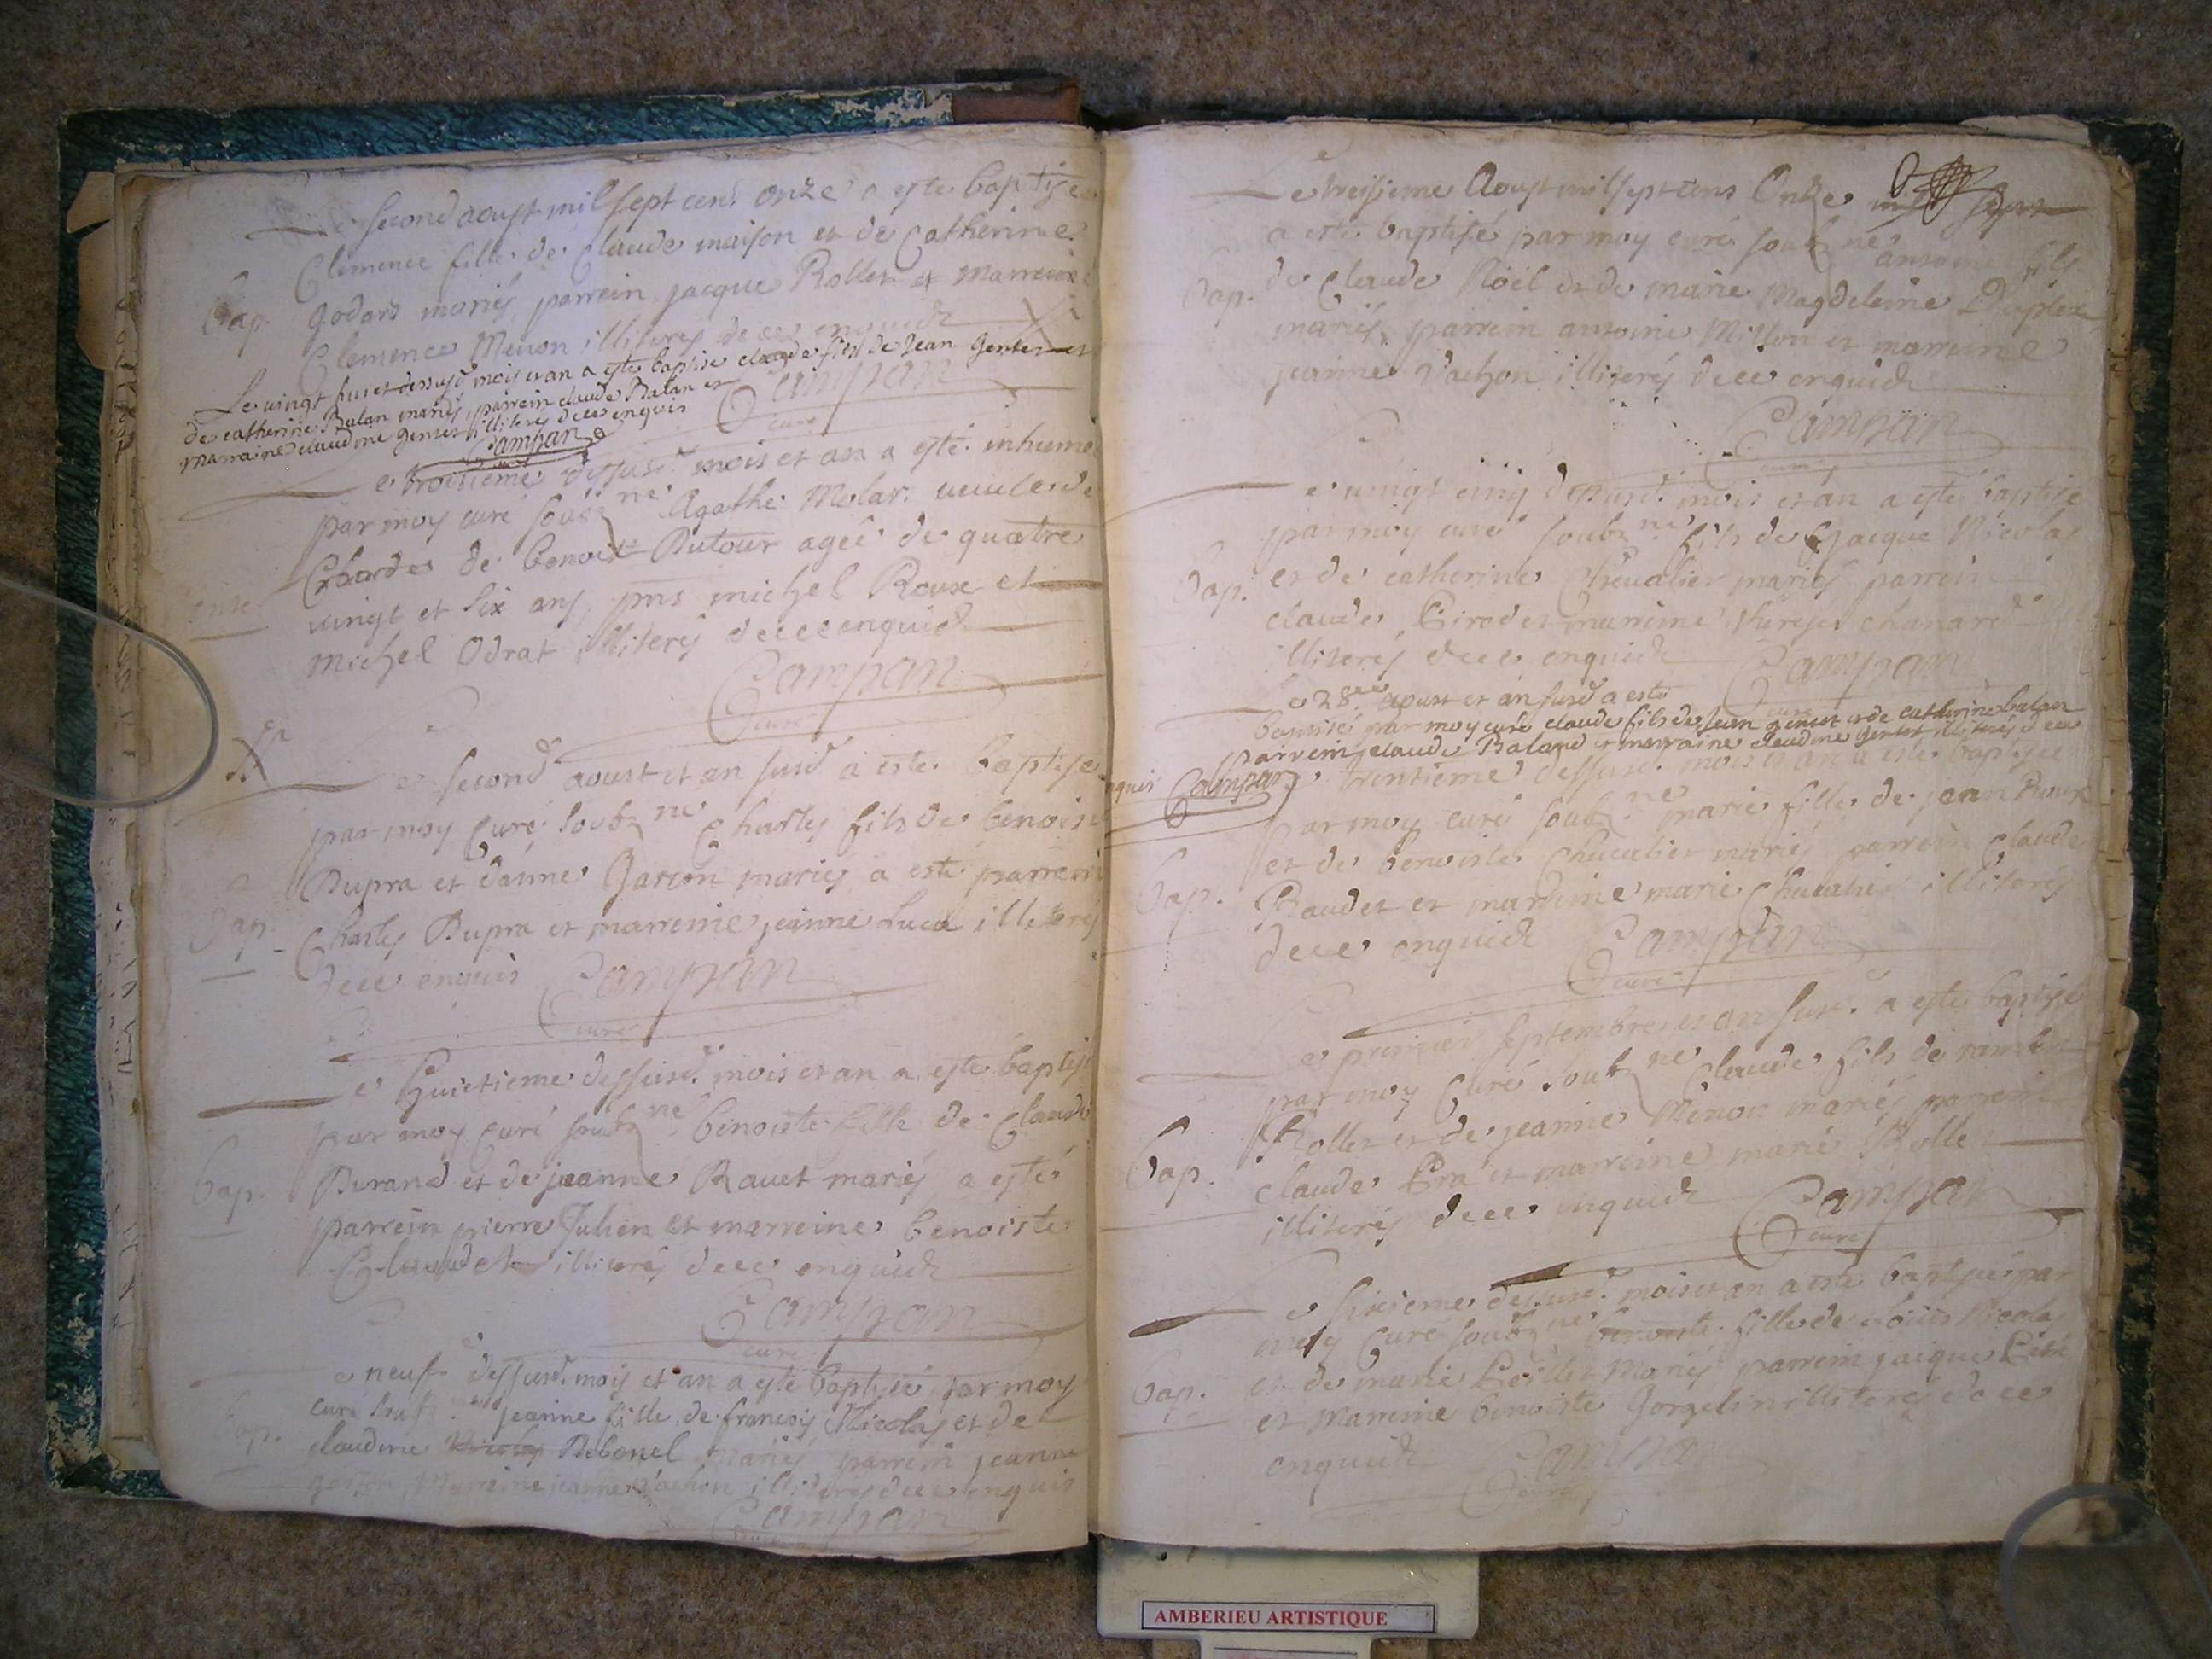 Le second aoust mil sept cens onze a este baptisé
Clemence fille de Claude maison et de Catherine
Bap. godard mariés parrein jacque Rollet et marreine
Clemence Menon illiterés de ce enquidz
Le vingt huict dessusd mois et an a este baptise claude fils de Jean Gentet et
de catherine Balan mariés, parrein claude Balan et
marraine claudine gentet illiterés de ce enquis
Campan
curé
Campan
Le troisieme dessusd. mois et an a esté inhumé
par moy curé soubz.né Agathe Molar. veufve de
de benoit Dutour agée de quatre
vingt et six ans, pns michel Roux et
michel Odrat illiterés de ce enquidz
Campan
curé
Le second aoust et an susd a este baptisé
par moy Curé soubz.né Charles fils de benoist
Dupra et danne Garcon mariés a esté parrein
Bap.
Charles Dupra et marreine jeanne Luca illiterés
de ce enquis Campan
curé
Le huictieme dessusd. mois et an a este baptisé
par moy Curé soubz.né benoiste fille de Claude
Bap. Durand et de jeanne Ravet mariés a esté
parrein pierre Julien et marreine benoiste
illiterés de ce enquidz
Campan
curé
Le neuf dessusd. mois et an a este baptisé par moy
curé soubz.né jeanne fille de francois Nicolas et de
Bap. claudine Debonel mariés parrein jeanne
marreine jeanne Vachon illiterés de ce enquis
Campan
curé
Le treisieme Aoust mil sept cens Onze
a esté baptisé par moy curé soubz.né antoine fils
Bap. de Claude Noël et de marie Magdeleine Duplex
mariés parrein antoine Millon et marreine
jeanne Vachon illiterés de ce enquidz
Campan
curé
Le vingt cinq dessusd. mois et an a esté baptisé
par moy curé soubz.né fils de Jacque Nicolas
Bap. et de catherine Chevalier mariés parrein
claude Pirodet marreine chanard
illiterés de ce enquidz Campan
curé
Le 28eme aoust et an susd a este
baptisé par moy curé claude fils de jean gentet et de catherine balan
parrein claude Baland et marraine claudine gentet illiterés de ce
enquis Campan
Le trentieme dessusd. mois et an a este baptisée
par moy curé soubz.né marie fille de jean Roux
et de benoiste Chevalier mariés parrein claude
Bap. Baudet et marreine marie Chevalier illiterés
de ce enquidz Campan
curé
Le premier septembre et an susd. a este baptisé
par moy Curé soubz.né Claude fils de rambert
Rollet et de jeanne Menon mariés parrein
Bap. claude Pra et marreine marie Rolle
illiterés de ce enquidz Campan
curé
Le sixieme dessusd. mois et an a este baptisée par
moy Curé soubz.né benoiste fille de Loüis Nicolas
Bap. et de marie mariés parrein jacque
et marreine benoiste Gorgelin illiterés de ce
enquidz Campan
curé
AMBERIEU ARTISTIQUE